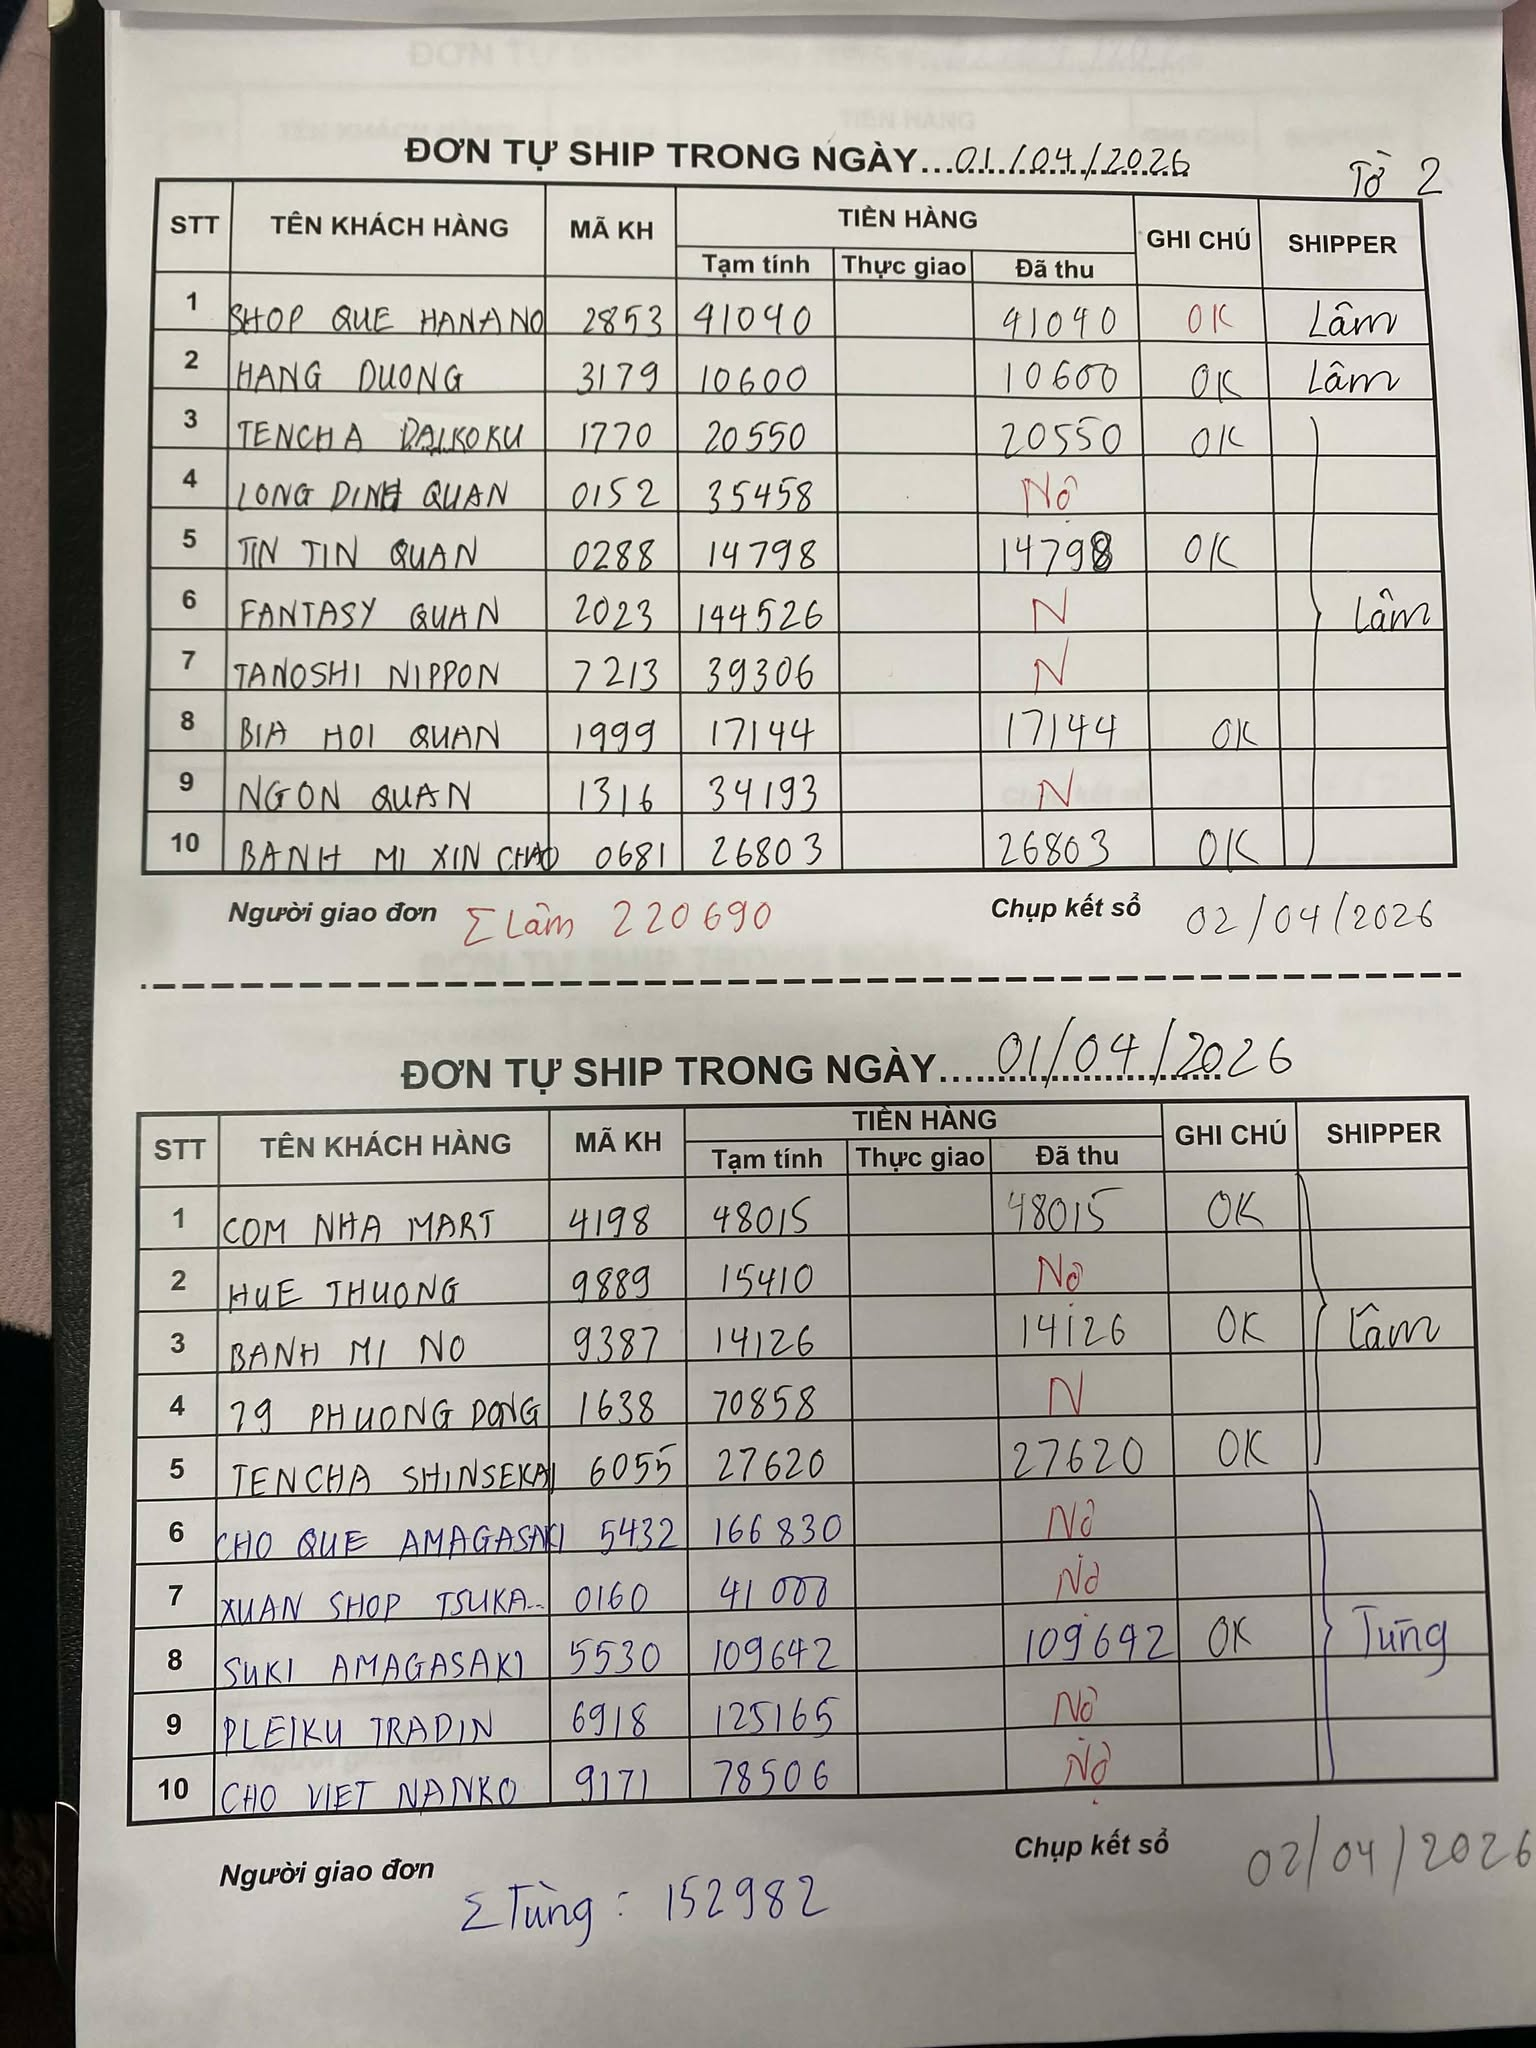 ĐƠN TỰ SHIP TRONG NGÀY...01/04/2026
Tờ 2
STT TÊN KHÁCH HÀNG MÃ KH TIỀN HÀNG GHI CHÚ SHIPPER
Tạm tính Thực giao Đã thu
1 SHOP QUE HANANO 2853 41040 41040 OK Lâm
2 HANG DUONG 3179 10600 10600 OK Lâm
3 TENCHA DAIKOKU 1770 20550 20550 OK
4 LONG DINH QUAN 0152 35458 Nợ
5 TIN TIN QUAN 0288 14798 14798 OK
6 FANTASY QUAN 2023 144526 N Lâm
7 TANOSHI NIPPON 7213 39306 N
8 BIA HOI QUAN 1999 17144 17144 OK
9 NGON QUAN 1316 34193 N
10 BANH MI XIN CHAO 0681 26803 26803 OK
Người giao đơn Σ Lâm 220690 Chụp kết sổ 02/04/2026
ĐƠN TỰ SHIP TRONG NGÀY...01/04/2026
STT TÊN KHÁCH HÀNG MÃ KH TIỀN HÀNG GHI CHÚ SHIPPER
Tạm tính Thực giao Đã thu
1 COM NHA MART 4198 48015 48015 OK
2 HUE THUONG 9889 15410 Nợ
3 BANH MI NO 9387 14126 14126 OK Lâm
4 79 PHUONG DONG 1638 70858 N
5 TENCHA SHINSEKAI 6055 27620 27620 OK
6 CHO QUE AMAGASAKI 5432 166830 Nợ
7 XUAN SHOP TSUKA... 0160 41000 Nợ
8 SUKI AMAGASAKI 5530 109642 109642 OK Tùng
9 PLEIKU TRADIN 6918 125165 Nợ
10 CHO VIET NANKO 9171 78506 Nợ
Người giao đơn Σ Tùng : 152982 Chụp kết sổ 02/04/2026